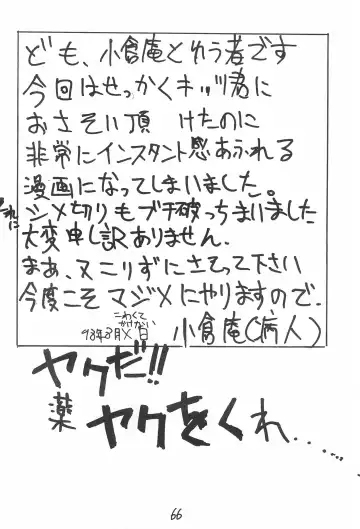 ども、小倉庵とゆう者です
今回はせっかくキッヅ君に
おさそい頂 けたのに
非常にインスタント感あふれる
漫画になってしまいました。
それに
シメ切りもブチ破っちまいました
大変申し訳ありません。
まあ、又こりずにさそって下さい
今度こそマジメにやりますので。
こわくて
かけない
93年8月X日
小倉庵(病人)
ヤクだ!!
薬
ヤクをくれ......
66